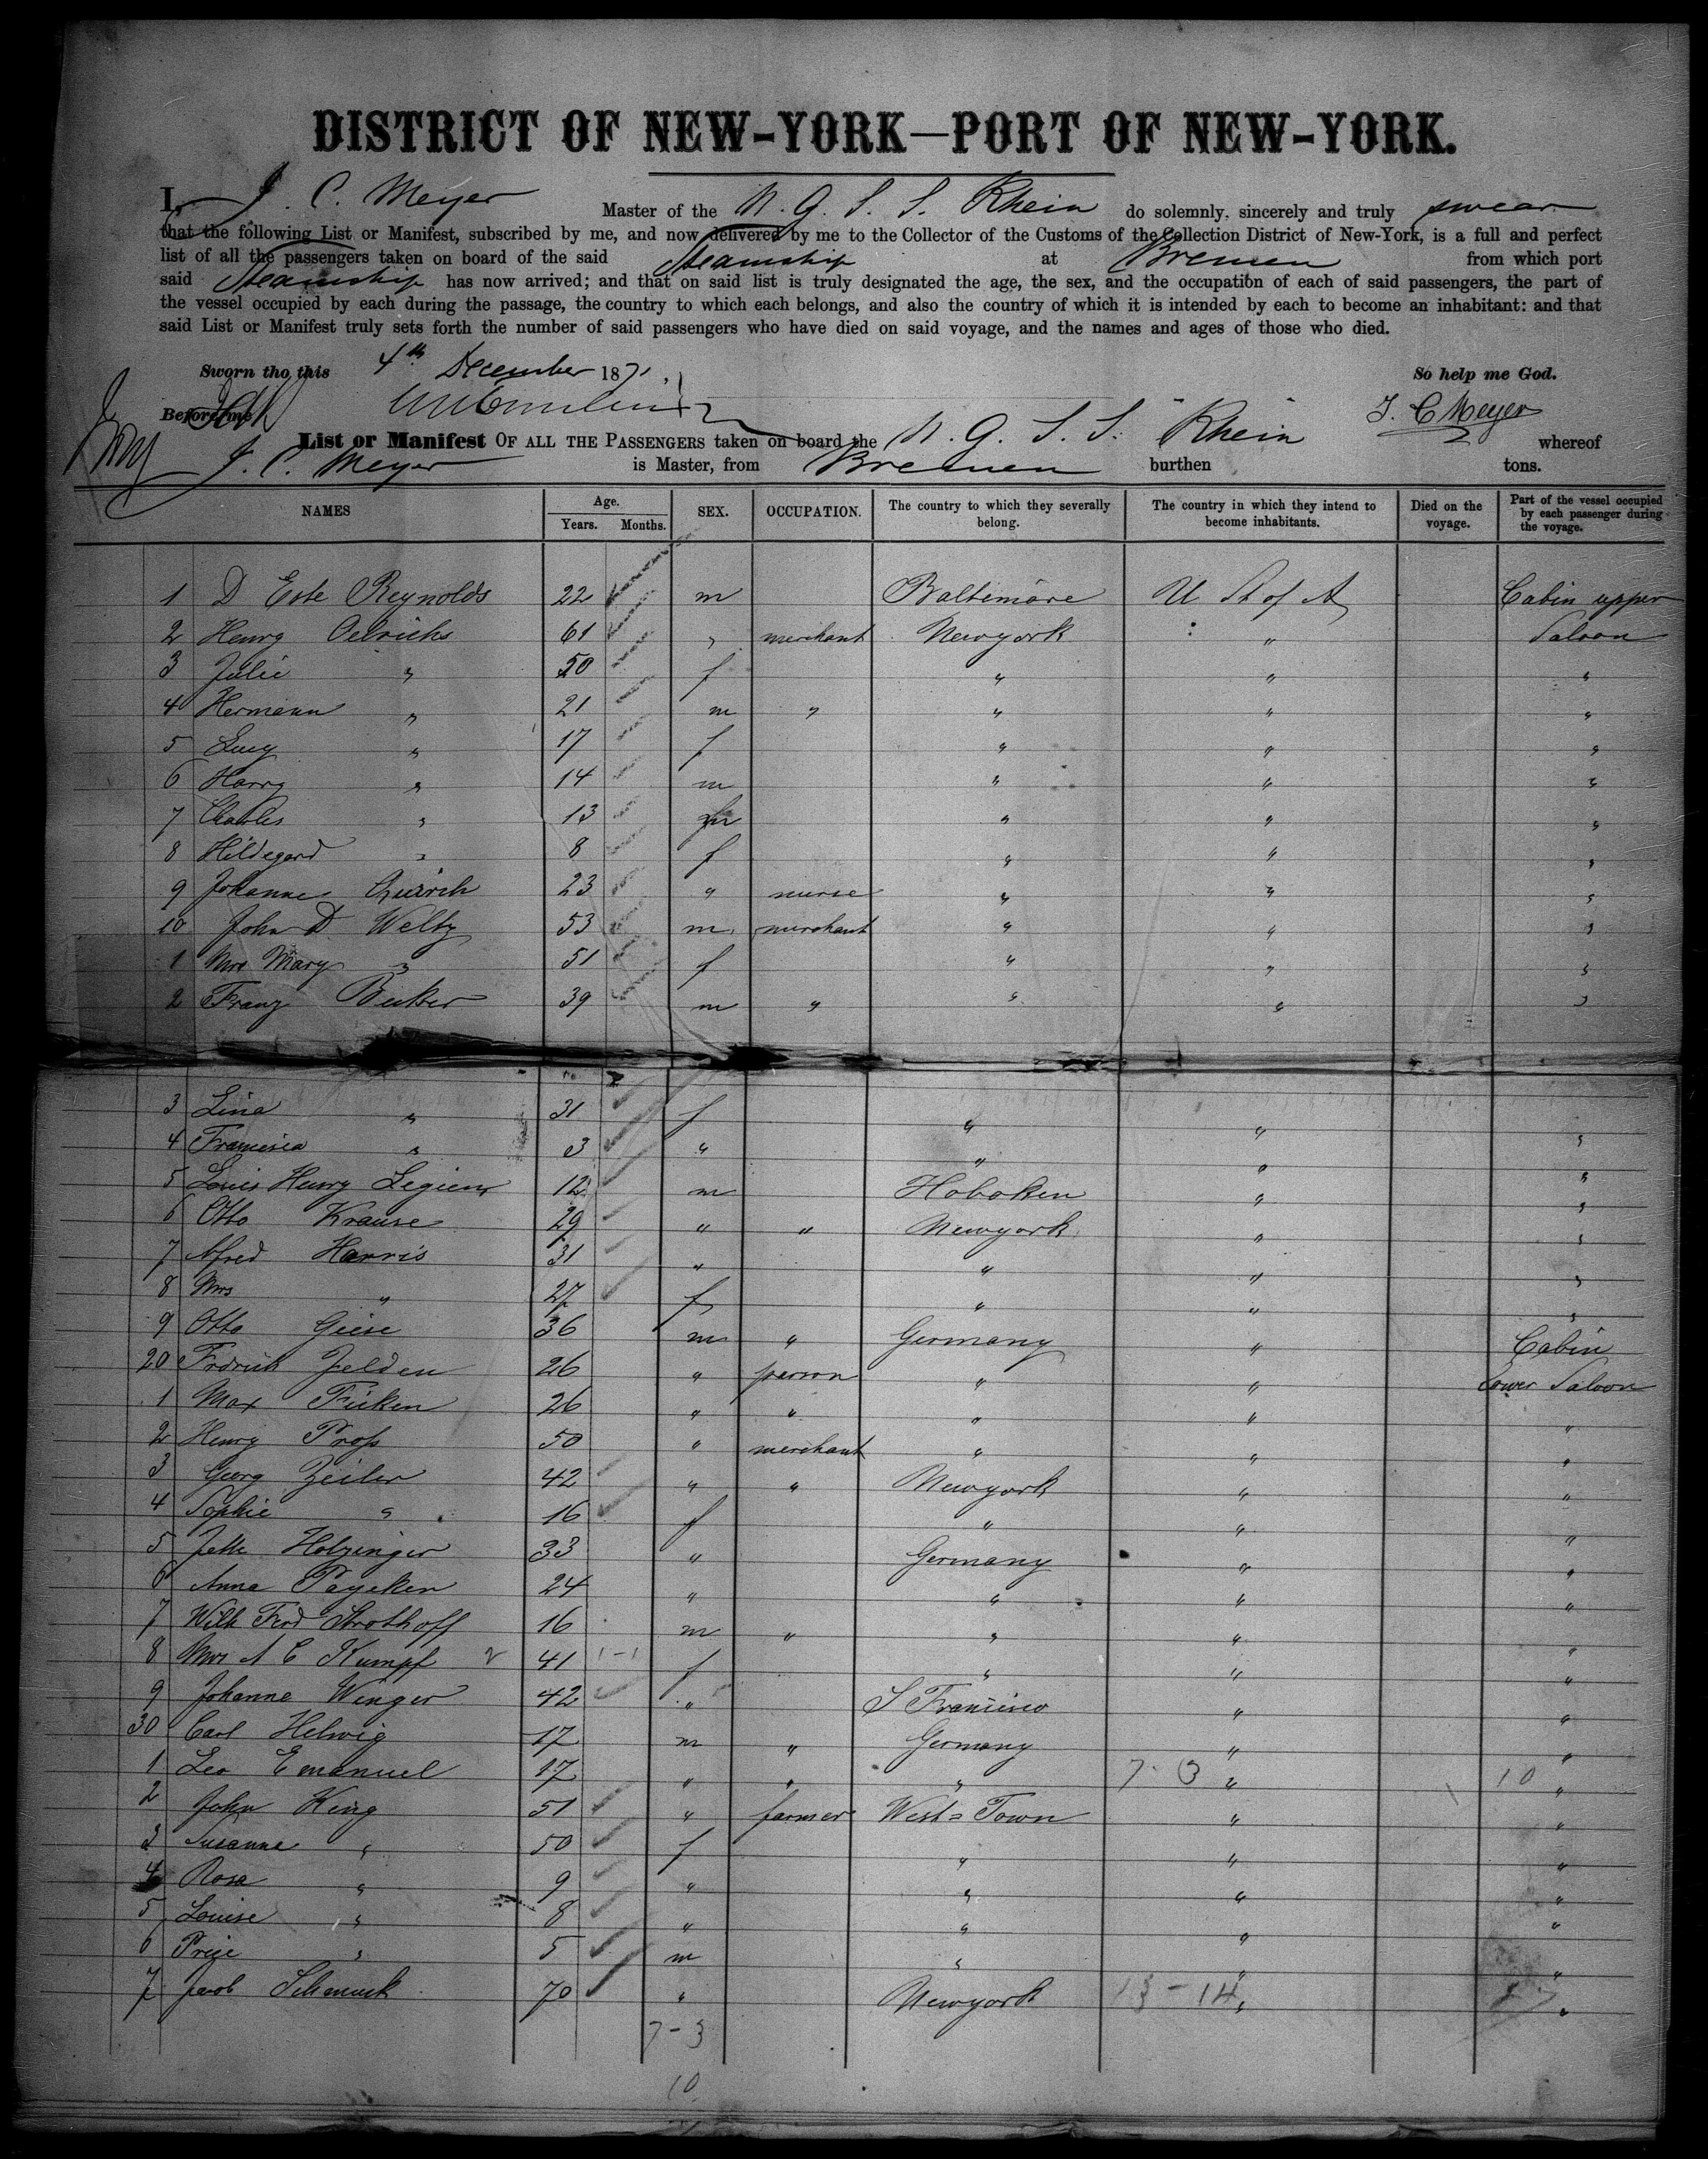 DISTRICT OF NEW-YORK—PORT OF NEW-YORK.
I, J. C. Meyer Master of the N. G. S. S. Rhein do solemnly, sincerely and truly swear
that the following List or Manifest, subscribed by me, and now delivered by me to the Collector of the Customs of the Collection District of New-York, is a full and perfect
list of all the passengers taken on board of the said Steamship at Bremen from which port
said Steamship has now arrived; and that on said list is truly designated the age, the sex, and the occupation of each of said passengers, the part of
the vessel occupied by each during the passage, the country to which each belongs, and also the country of which it is intended by each to become an inhabitant: and that
said List or Manifest truly sets forth the number of said passengers who have died on said voyage, and the names and ages of those who died.
Sworn tho this 4th December 1871, So help me God.
Before me J. C Meyer
List or Manifest OF ALL THE PASSENGERS taken on board the N. G. S. S. Rhein whereof
J. C. Meyer is Master, from Bremen burthen tons.
NAMES Age. Years. Months. SEX. OCCUPATION. The country to which they severally belong. The country in which they intend to become inhabitants. Died on the voyage. Part of the vessel occupied by each passenger during the voyage.
1 D Este Reynolds 22 m Baltimore U St of A Cabin upper
2 Henry Oelrichs 61 " merchant Newyork " Saloon
3 Julie " 50 f " " "
4 Hermann " 21 m " " " "
5 Lucy " 17 f " " "
6 Harry " 14 m " " "
7 Charles " 13 m " " "
8 Hildegard " 8 f " " "
9 Johanne 23 " nurse " " "
10 John D Welty 53 m merchant " " "
1 Mrs Mary " 51 f " " "
2 Franz Becker 39 m " " " "
3 Lina " 31 f " " "
4 Francisca " 3 " " " "
5 Louis Henry Legien 12 m Hoboken " "
6 Otto Krause 29 " " Newyork " "
7 Alfred Harris 31 " " " "
8 Mrs " 27 f " " "
9 Otto Giese 36 m " Germany " Cabin
20 Frdrich Jelden 26 " person " " Lower Saloon
1 Max Ficken 26 " " " " "
2 Henry Pross 50 " merchant " " "
3 Georg Zeiler 42 " " Newyork " "
4 Sophie " 16 f " " "
5 Jette Holzinger 33 " Germany " "
6 Anna Paycken 24 " " " "
7 Wilh Ferd Strothoff 16 m " " " "
8 Mrs A C Kumpf 2 41 1-1 f " " "
9 Johanne Winger 42 " S Francisco " "
30 Carl Helwig 17 m " Germany " "
1 Leo Emanuel 17 " " " 7-3 " 10 "
2 John King 51 " farmer West=Town " "
3 Susanne " 50 f " " "
4 Rosa " 9 " " " "
5 Louise " 8 " " " "
6 Price " 5 m " " "
7 Jacob Schmuck 70 " Newyork 13-14 " "
7-3
10